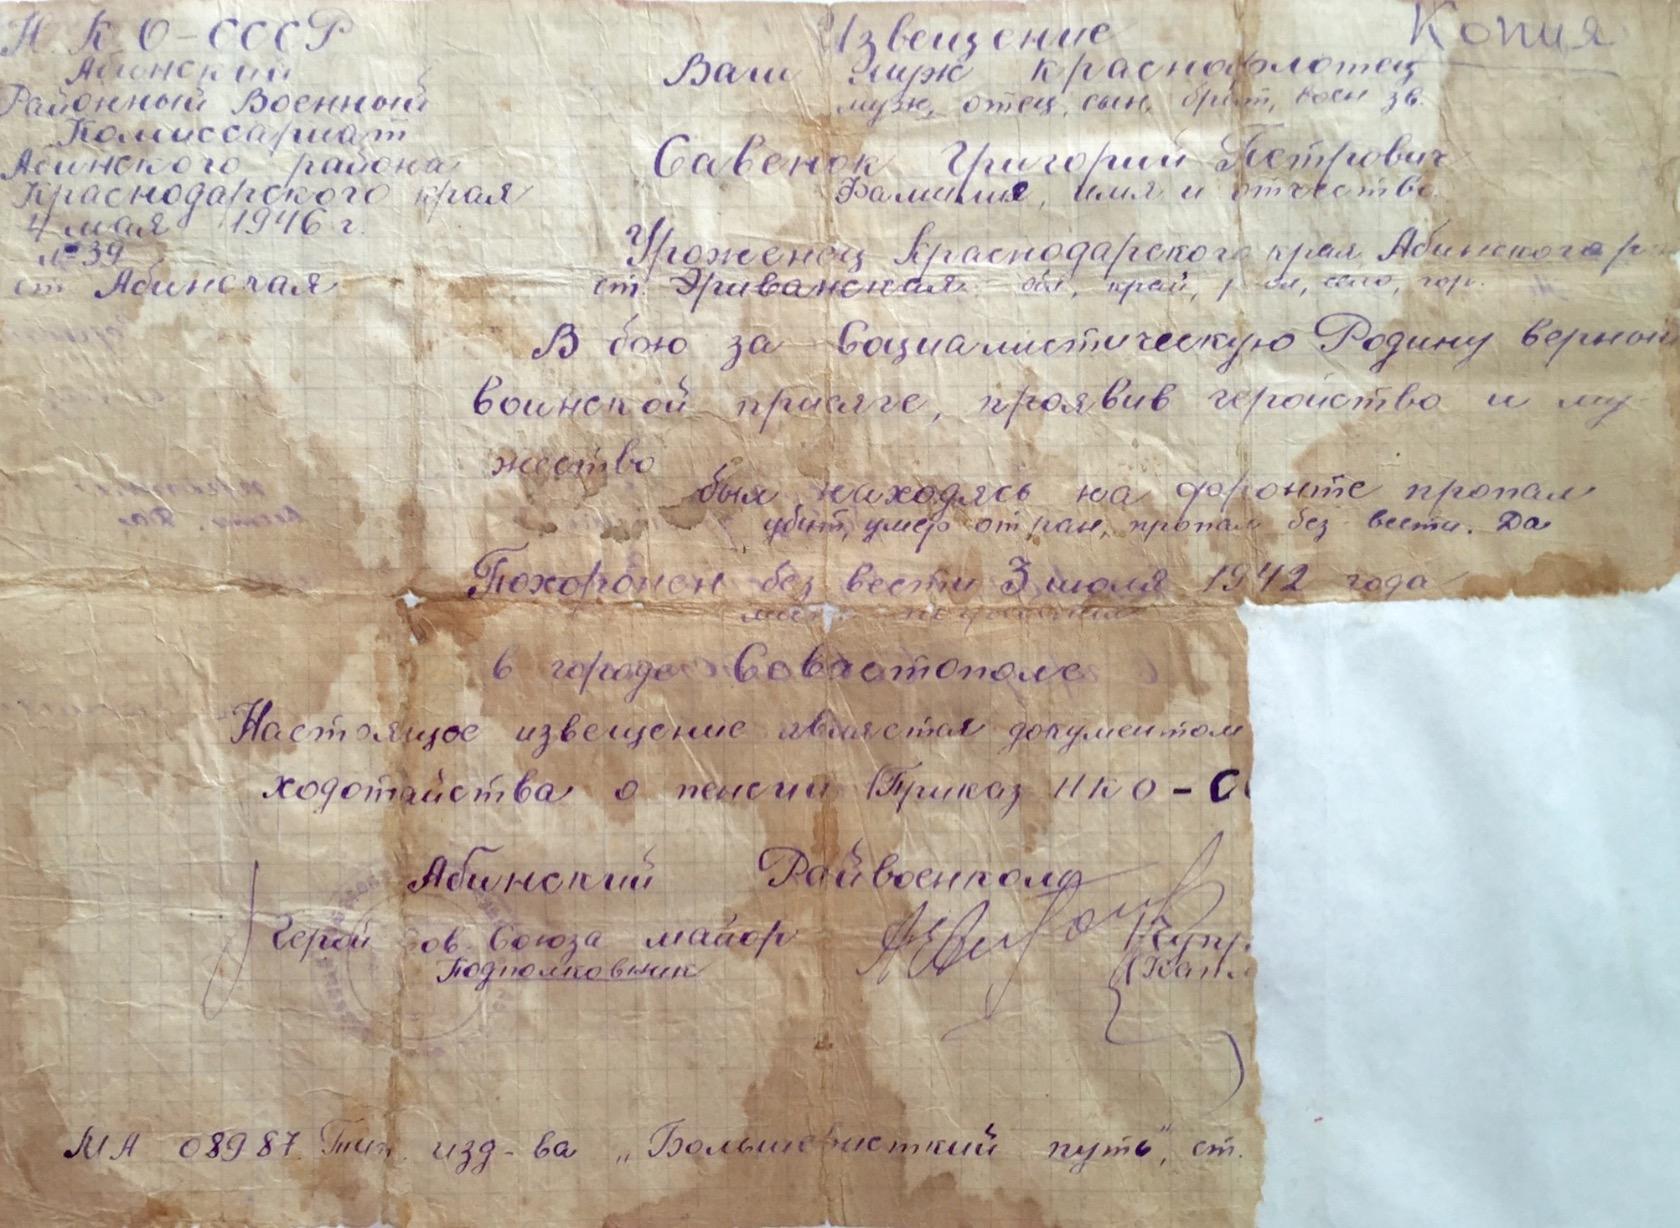 Н. К. О - СССР
Абинский
Районный Военный
Комиссариат
Абинского района
Краснодарского края
4 мая 1946 г.
№ 39
ст. Абинская
Копия
Извещение
Ваш муж краснофлотец
муж, отец, сын, брат, воен зв.
Савенок Григорий Петрович
Фамилия, имя и отчество.
Уроженец Краснодарского края Абинского р
ст. Эриванская. обл, край, р-он, село, гор.
В бою за Социалистическую Родину верный
воинской присяге, проявив геройство и му-
жество
был находясь на фронте пропал
убит, умер от ран, пропал без вести. Да
Похоронен без вести 3 июля 1942 года
в городе Севастополе
Настоящее извещение является документом
ходотайства о пенсии (Приказ НКО - СС
Абинский Райвоенком
Герой Сов. Союза майор
Подполковник
(Купр.
(Капл
МА 08987. Тип. изд-ва „Большевисткий путь", ст.